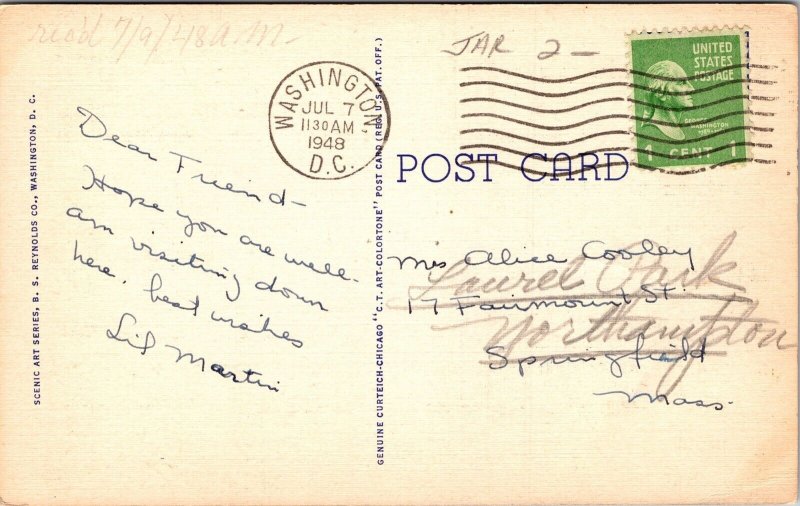 rec'd 7/9/48 A.M.
SCENIC ART SERIES, B. S. REYNOLDS CO., WASHINGTON, D. C.
Dear Friend-
Hope you are well-
am visiting down
here. best wishes
Lil Martin
WASHINGTON
JUL 7
1130 AM
1948
D.C.
GENUINE CURTEICH-CHICAGO "C. T. ART-COLORTONE" POST CARD (REG. U. S. PAT. OFF.)
2 -
UNITED
STATES
POSTAGE
GEORGE
WASHINGTON
1 CENT 1
POST CARD
Mrs Alice Cooley
Laurel Park
17 Fairmount St
Northampton
Springfield
Mass.